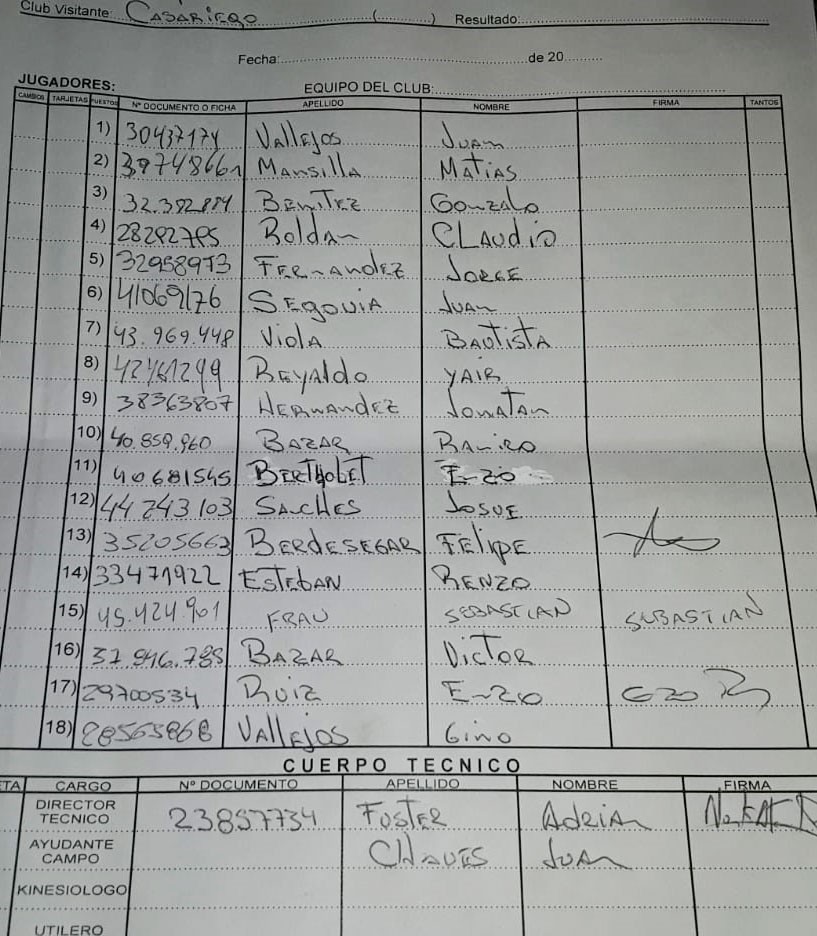 Club Visitante: CASARIEGO (............) Resultado:
Fecha: de 20
JUGADORES: EQUIPO DEL CLUB:
CAMBIOS TARJETAS PUESTOS Nº DOCUMENTO O FICHA APELLIDO NOMBRE FIRMA TANTOS
1) 30437174 Vallejos Juan
2) Mansilla Matias
3) 32.392.884 Benitez Gonzalo
4) Roldan Claudio
5) 32958973 Fernandez Jorge
6) 41069176 Segovia Juan
7) 43.969.448 Viola Bautista
8) Reyaldo Yair
9) 38363807 Hernandez Jonatan
10) 40.859.960 Bazar Ramiro
11) 40681545 Bertholet Enzo
12) 44243103 Sanches Josue
13) 35205663 Berdesegar Felipe
14) 33471922 Esteban Renzo
15) 45.424.901 FRAU SEBASTIAN SEBASTIAN
16) 37.946.785 Bazar Victor
17) 29700534 Ruiz Enzo
18) 28563868 Vallejos Gino
CUERPO TECNICO
TA CARGO Nº DOCUMENTO APELLIDO NOMBRE FIRMA
DIRECTOR TECNICO 23857734 Foster Adrian
AYUDANTE CAMPO Chaves Juan
KINESIOLOGO
UTILERO